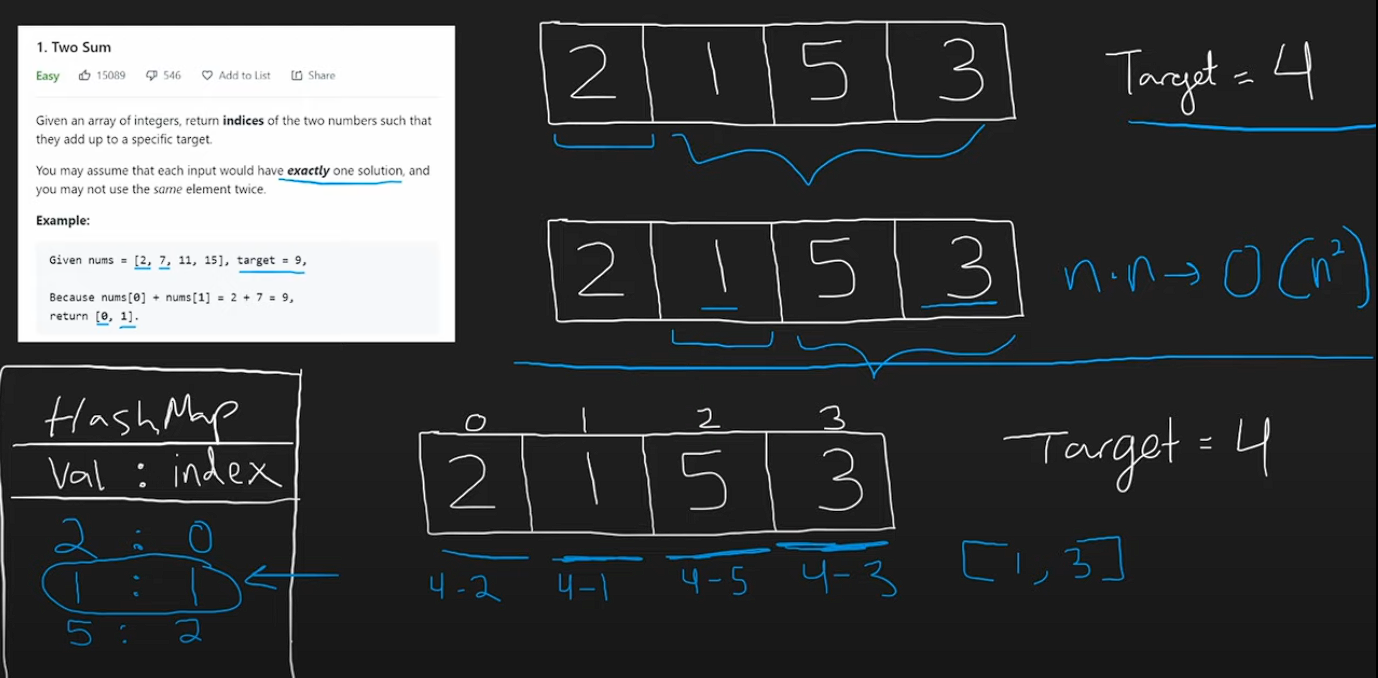 1. Two Sum
Easy 15089 546 Add to List Share
Given an array of integers, return indices of the two numbers such that
they add up to a specific target.
You may assume that each input would have exactly one solution, and
you may not use the same element twice.
Example:
Given nums = [2, 7, 11, 15], target = 9,
Because nums[0] + nums[1] = 2 + 7 = 9,
return [0, 1].
2 1 5 3
Target = 4
2 1 5 3
n·n→O(n²)
HashMap
Val : index
2 : 0
1 : 1
5 : 2
0 1 2 3
2 1 5 3
4-2 4-1 4-5 4-3
Target = 4
[1, 3]